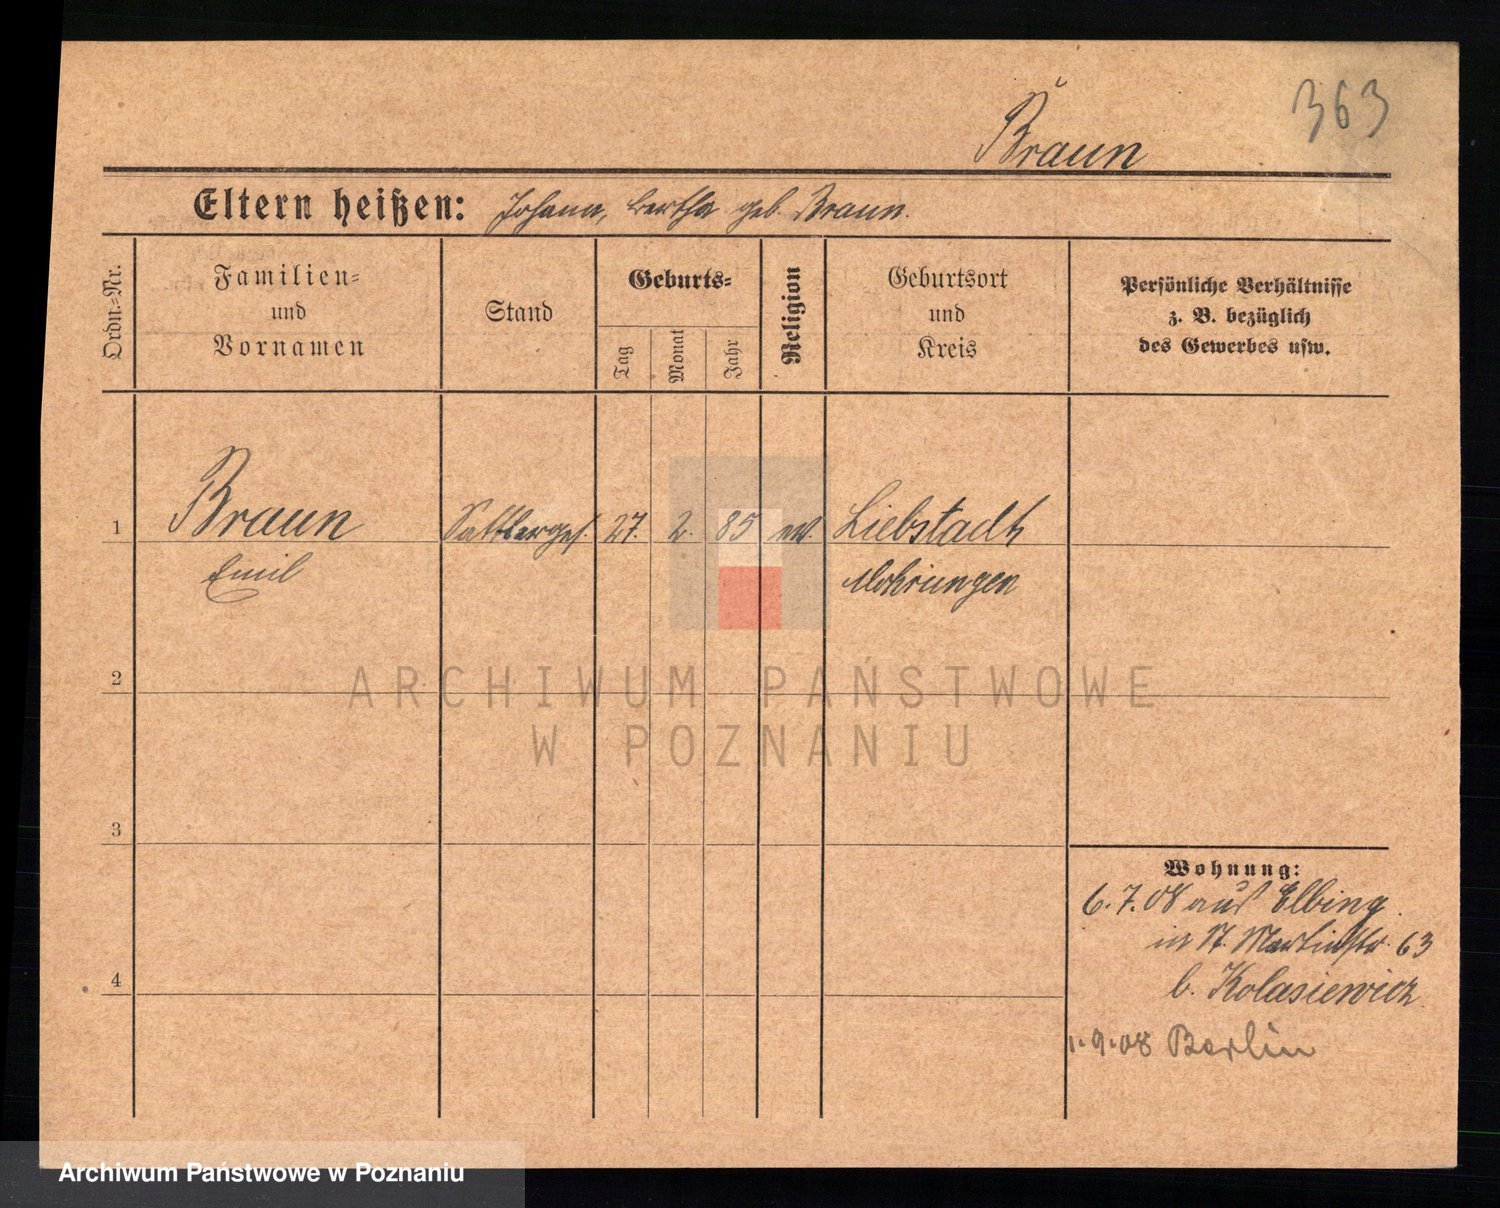 363
Braun
Eltern heißen: Johann, Bertha geb. Braun.
Ordn.=Nr.
Familien=
und
Vornamen
Stand
Geburts=
Tag
Monat
Jahr
Religion
Geburtsort
und
Kreis
Persönliche Verhältnisse
z. B. bezüglich
des Gewerbes usw.
1 Braun Sattlerges. 27. 2. 85 ev. Liebstadt
Emil Mohrungen
2
3
4
Wohnung:
6.7.08 aus Elbing.
in St. Martinstr. 63
b. Kolasiewicz
1.9.08 Berlin
ARCHIWUM PAŃSTWOWE
W POZNANIU
Archiwum Państwowe w Poznaniu